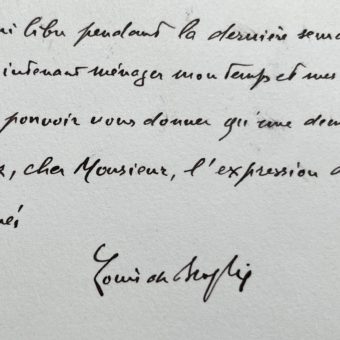 ni libre pendant la dernière sema
intenant ménager mon temps et mes
pouvoir vous donner qu'une dem
, cher Monsieur, l'expression d
Louis de Broglie